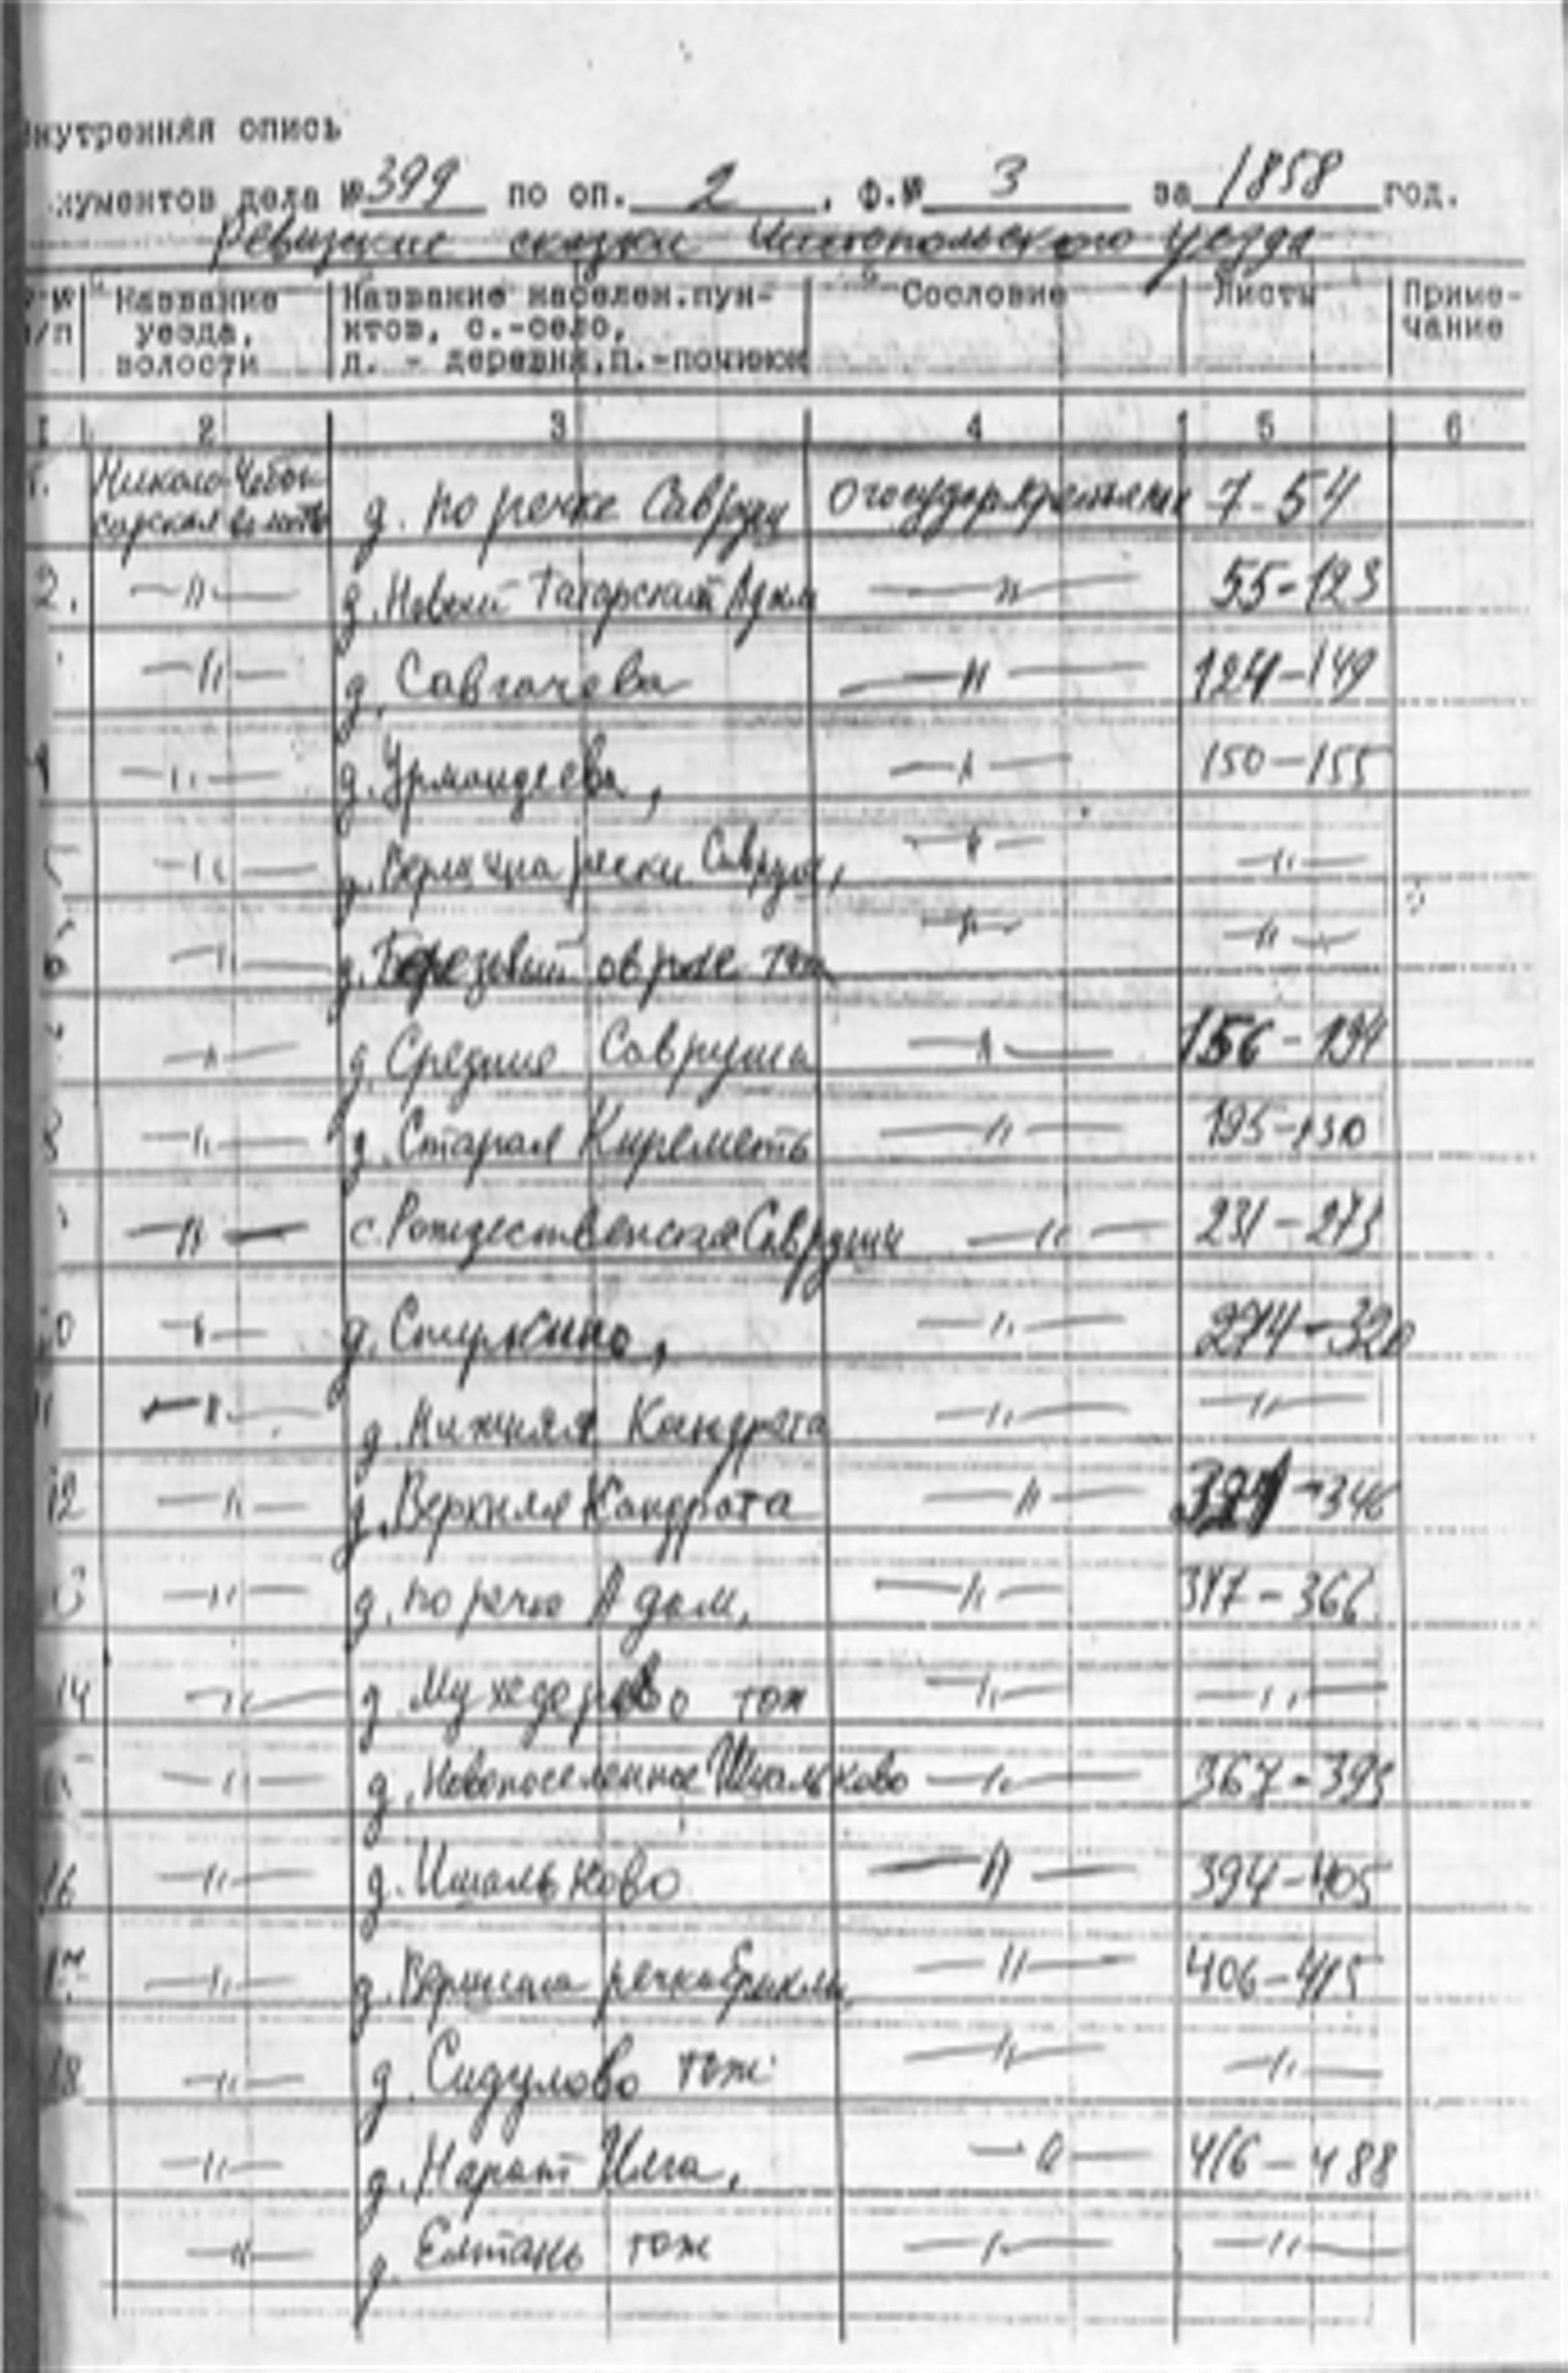 нутренняя опись
кументов дела № 399 по оп. 2, ф.№ 3 за 1858 год.
Ревизские сказки Чистопольского уезда
№ п/п | Название уезда, волости | Название населен.пунктов, с.-село, д. - деревня,п.-починок | Сословие | Листы | Примечание
I 2 3 4 5 6
1. Николо-Чебоксарская волость д. по речке Савруш государ.крестьяне 7-54
2. —"— д. Новый Татарский Адам —"— 55-123
—"— д. Савгачева —"— 124-149
4 —"— д. Урмандеева, —"— 150-155
5 —"— д. Вершина речки Савруш, —"— —"—
6 —"— д. Березовый овраг тож —"— —"—
—"— д. Средние Савруши —"— 156-194
8 —"— д. Старая Киреметь —"— 195-230
—"— с. Рождественская Савруши —"— 231-273
10 —"— д. —"— 274-320
11 —"— д. Нижняя Кондрата —"— —"—
12 —"— д. Верхняя Кондрата —"— 321-346
13 —"— д. по речке Адам, —"— 347-366
14 —"— д. Мухедорово тож —"— —"—
15 —"— д. Новопоселенное Ишальково —"— 367-393
16 —"— д. Ишальково —"— 394-405
17 —"— д. Вершина речка —"— 406-415
18 —"— д. Сидулово тож —"— —"—
—"— д. Нарат Илга, —"— 416-488
—"— д. Елтань тож —"— —"—